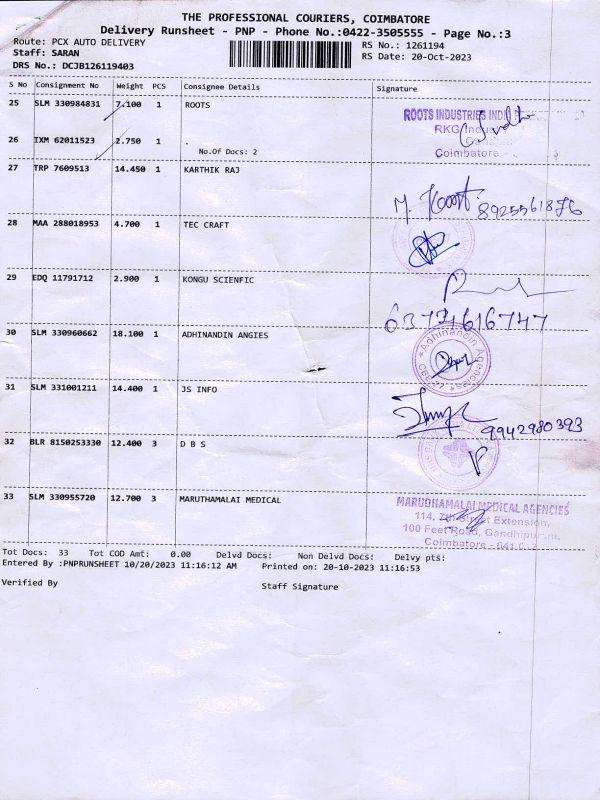 THE PROFESSIONAL COURIERS, COIMBATORE
Delivery Runsheet - PNP - Phone No.:0422-3505555 - Page No.:3
Route: PCX AUTO DELIVERY
RS No.: 1261194
Staff: SARAN
RS Date: 20-Oct-2023
DRS No.: DCJB126119403
S No Consignment No Weight PCS Consignee Details Signature
25 SLM 330984831 7.100 1 ROOTS
ROOTS INDUSTRIES
RKG
Coimbatore -
26 IXM 62011523 2.750 1 .
No.Of Docs: 2
27 TRP 7609513 14.450 1 KARTHIK RAJ
8925561876
28 MAA 288018953 4.700 1 TEC CRAFT
29 EDQ 11791712 2.900 1 KONGU SCIENFIC
6374616747
30 SLM 330960662 18.100 1 ADHINANDIN ANGIES
Adhinandin Agencies
31 SLM 331001211 14.400 1 JS INFO
9942980393
32 BLR 8150253330 12.400 3 D B S
33 SLM 330955720 12.700 3 MARUTHAMALAI MEDICAL
MARUDHAMALAI MEDICAL AGENCIES
114, 7th Street Extension,
100 Feet Road, Gandhipuram,
Coimbatore - 641
Tot Docs: 33 Tot COD Amt: 0.00 Delvd Docs: Non Delvd Docs: Delvy pts:
Entered By :PNPRUNSHEET 10/20/2023 11:16:12 AM Printed on: 20-10-2023 11:16:53
Verified By
Staff Signature